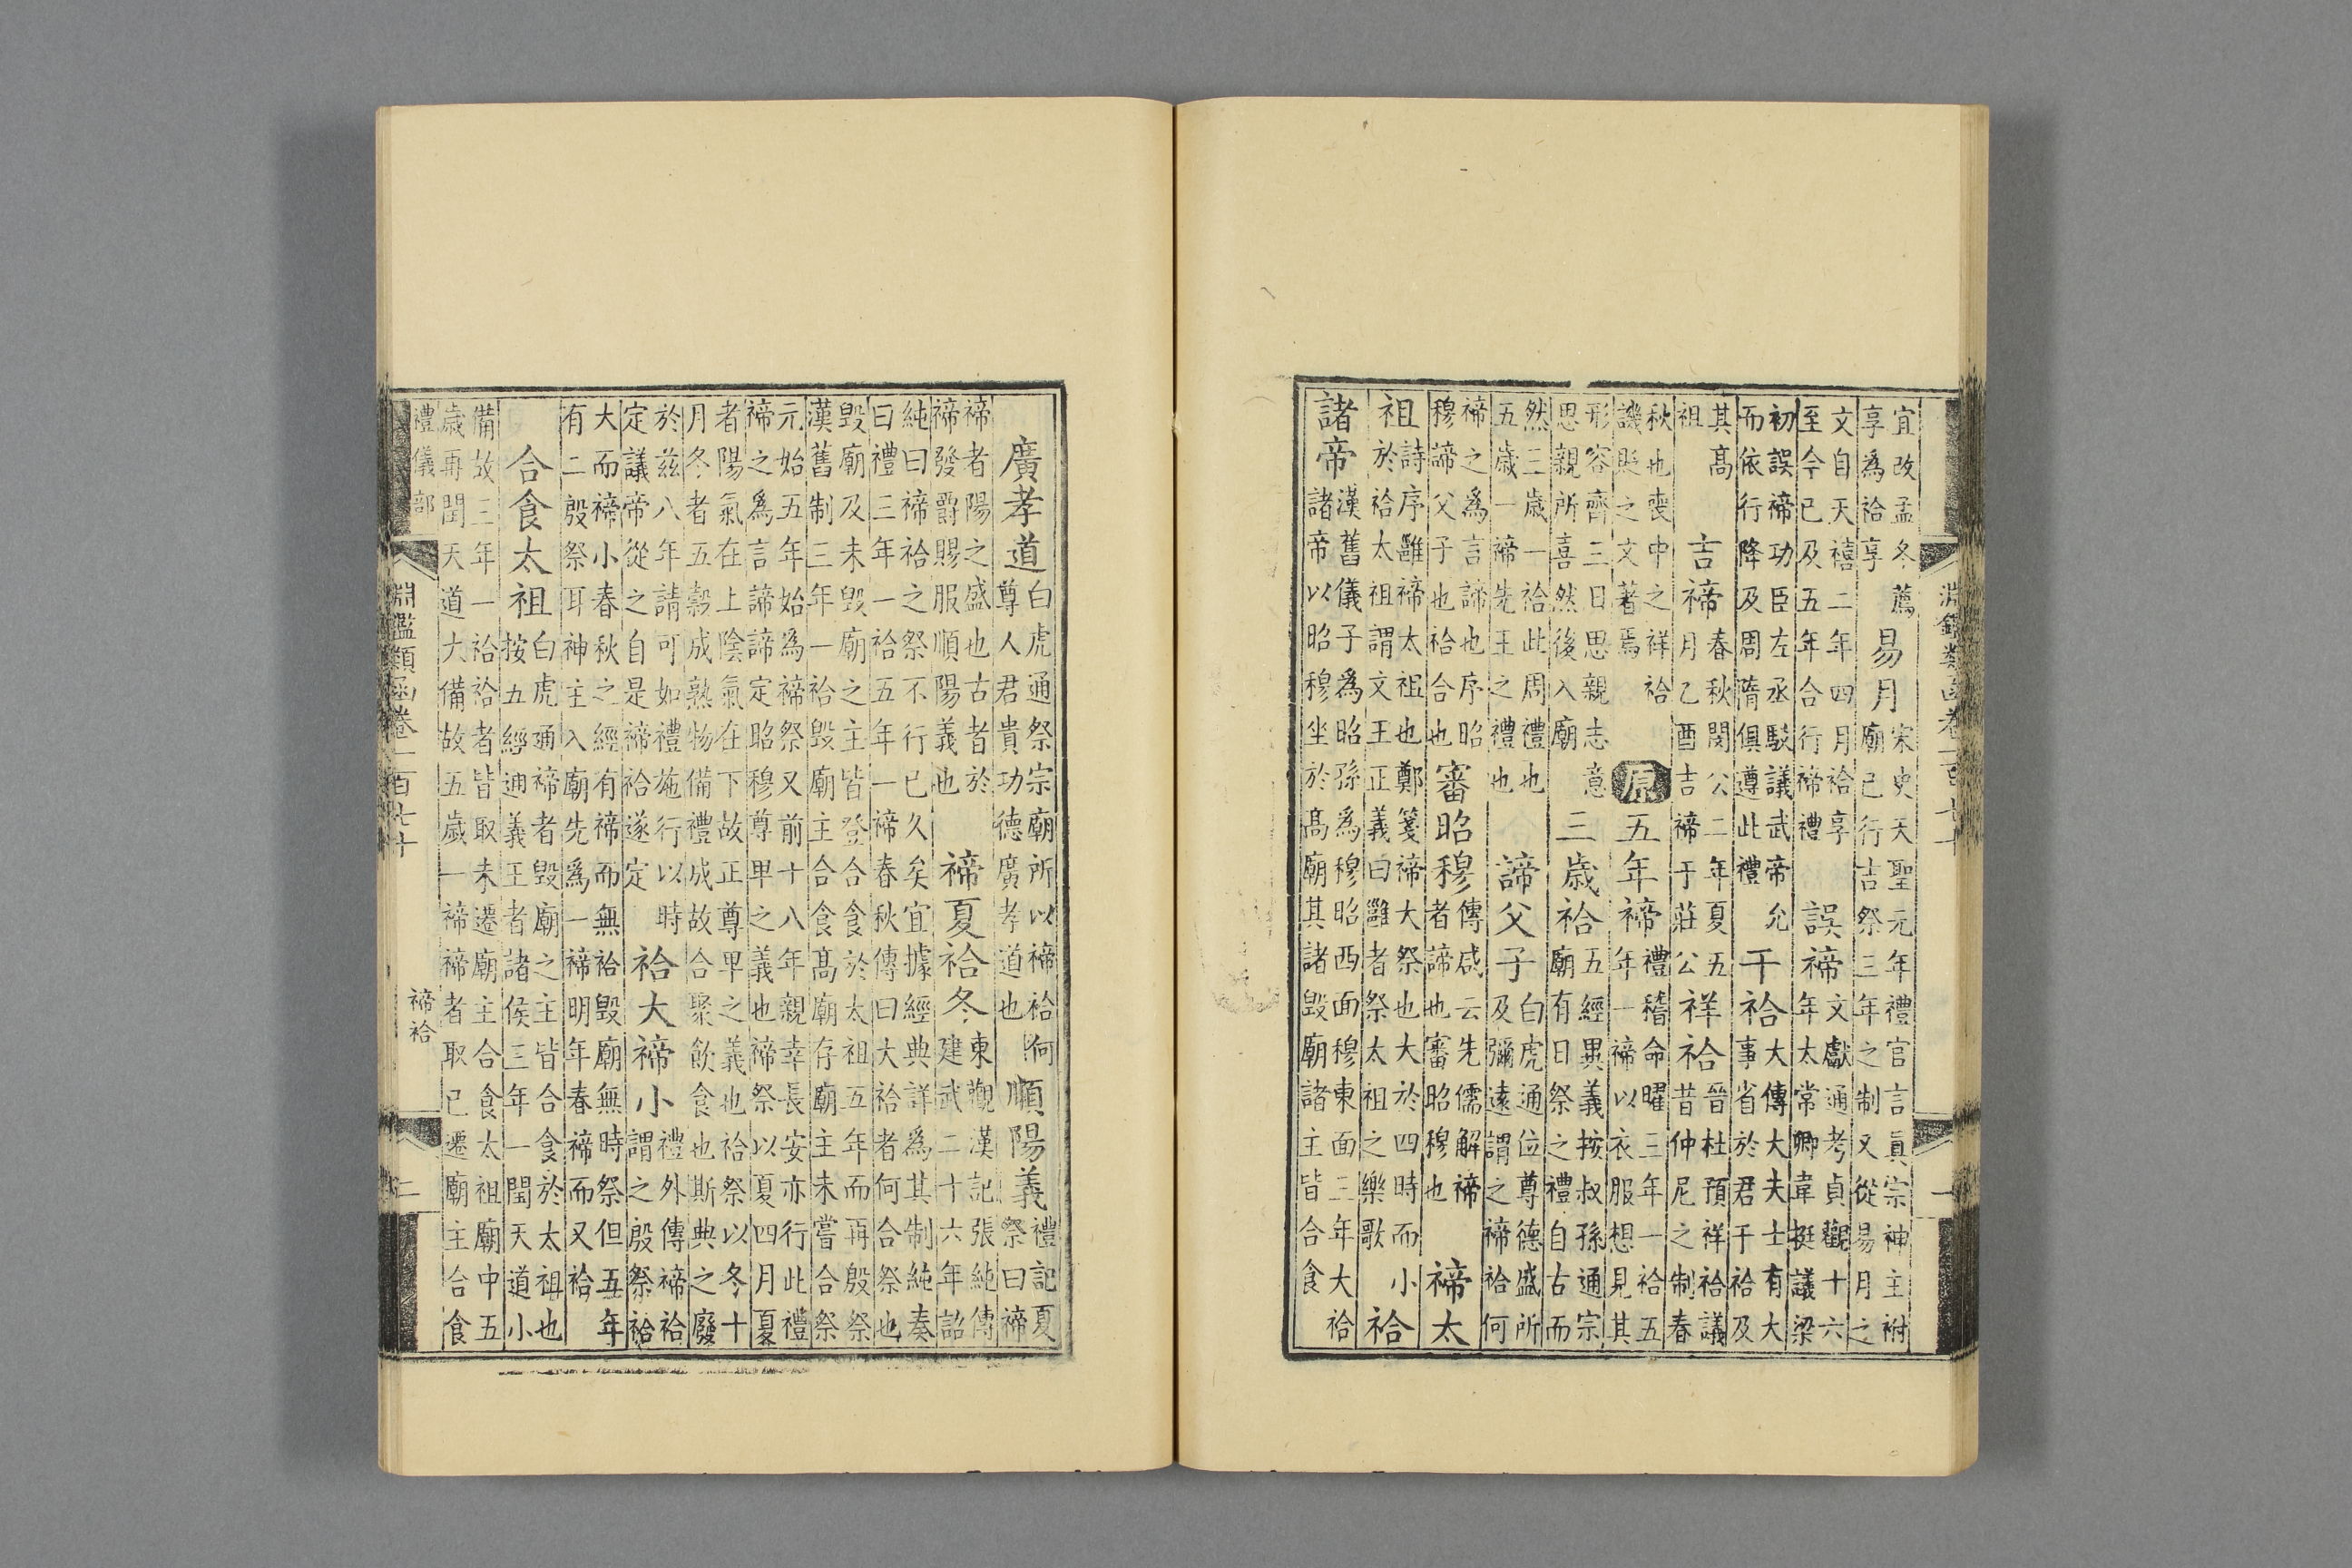 宜改孟冬薦享為祫享易月宋史天聖元年禮官言真宗神主祔廟已行吉祭三年之制又從易月之
文自天禧二年四月祫享至今已及五年合行禘禮誤禘文獻通考貞觀十六年太常卿韋挺議梁
初誤禘功臣左丞駁議武帝允而依行降及周隋俱遵此禮干祫大傳大夫士有大事省於君干祫及
其高祖吉禘春秋閔公二年夏五月乙酉吉禘于莊公祥祫晉杜預祥祫議昔仲尼之制春
秋也喪中之祥祫譏貶之文著焉原五年禘禮稽命曜三年一祫五年一禘以衣服想見其
形容齊三日思親志意思親所喜然後入廟三歲祫五經異義按叔孫通宗廟有日祭之禮自古而
然三歲一祫此周禮也五歲一禘先王之禮也諦父子白虎通位尊德盛所及彌遠謂之禘祫何
禘之為言諦也序昭穆諦父子也祫合也審昭穆傳咸云先儒解禘者諦也審昭穆也禘太
祖詩序雝禘太祖也鄭箋禘大祭也大於四時而小於祫太祖謂文王正義曰雝者祭太祖之樂歌祫
諸帝漢舊儀子為昭孫為穆昭西面穆東面三年大祫諸帝以昭穆坐於高廟其諸毀廟諸主皆合食
淵鑑類函卷一百七十
一
廣孝道白虎通祭宗廟所以禘祫何尊人君貴功德廣孝道也順陽義禮記夏祭曰禘
禘者陽之盛也古者於禘發爵賜服順陽義也禘夏祫冬東觀漢記張純傳建武二十六年詔
純曰禘祫之祭不行已久矣宜據經典詳為其制純奏曰禮三年一祫五年一禘春秋傳曰大祫者何合祭也
毀廟及未毀廟之主皆登合食於太祖五年而再殷祭漢舊制三年一祫毀廟主合食高廟存廟主未嘗合祭
元始五年始為禘祭又前十八年親幸長安亦行此禮禘之為言諦諦定昭穆尊卑之義也禘祭以夏四月夏
者陽氣在上陰氣在下故正尊卑之義也祫祭以冬十月冬者五穀成熟物備禮成故合聚飲食也斯典之廢
於茲八年請可如禮施行以時定議帝從之自是禘祫遂定祫大禘小禮外傳禘祫謂之殷祭祫
大而禘小春秋之經有禘而無祫毀廟無時祭但五年有二殷祭耳神主入廟先為一禘明年春禘而又祫
合食太祖白虎通禘者毀廟之主皆合食於太祖也按五經通義王者諸侯三年一閏天道小
備故三年一祫祫者皆取未遷廟主合食太祖廟中五歲再閏天道大備故五歲一禘禘者取已遷廟主合食
禮儀部
淵鑑類函卷一百七十
禘祫
二